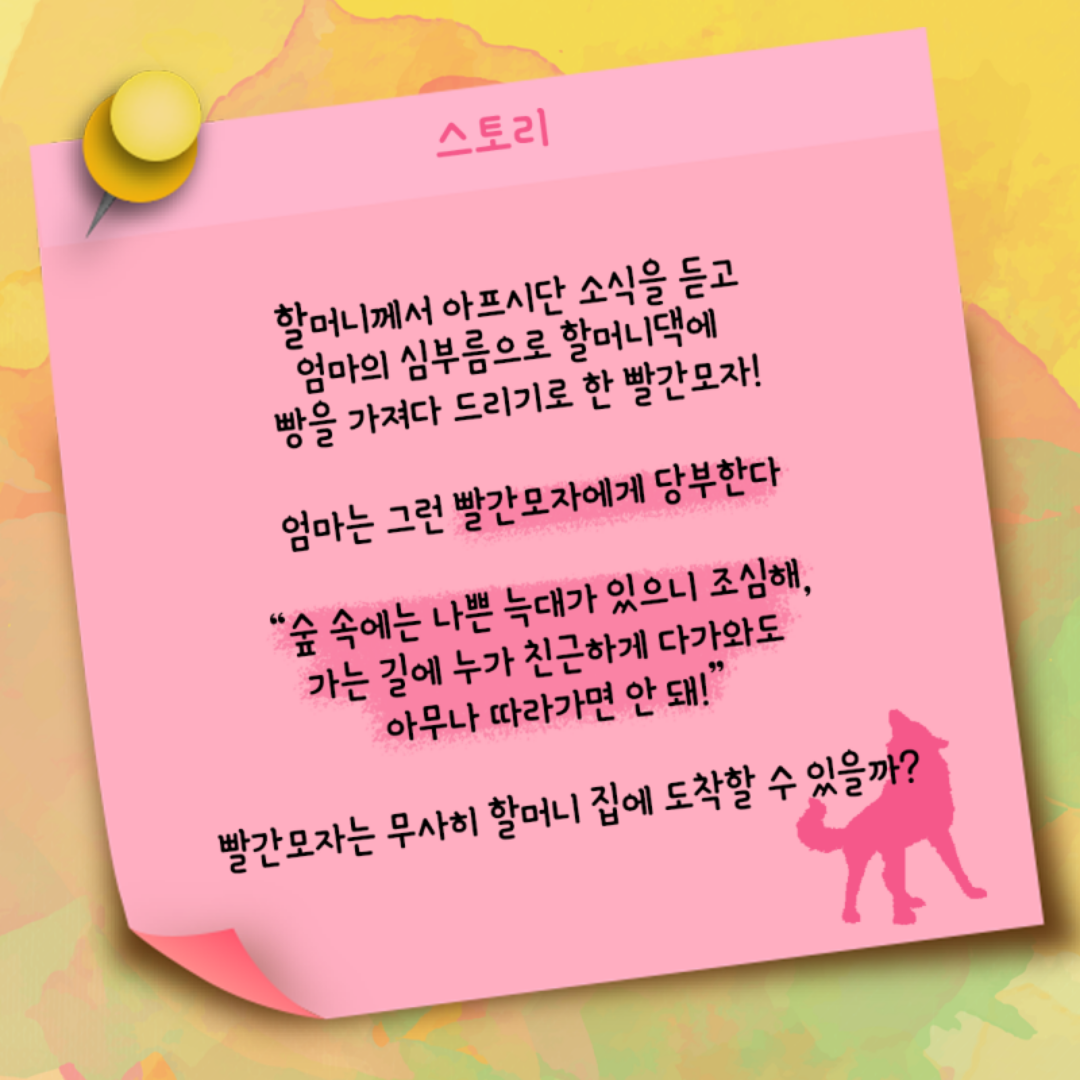 스토리
할머니께서 아프시단 소식을 듣고
엄마의 심부름으로 할머니댁에
빵을 가져다 드리기로 한 빨간모자!
엄마는 그런 빨간모자에게 당부한다
“숲 속에는 나쁜 늑대가 있으니 조심해,
가는 길에 누가 친근하게 다가와도
아무나 따라가면 안 돼!”
빨간모자는 무사히 할머니 집에 도착할 수 있을까?